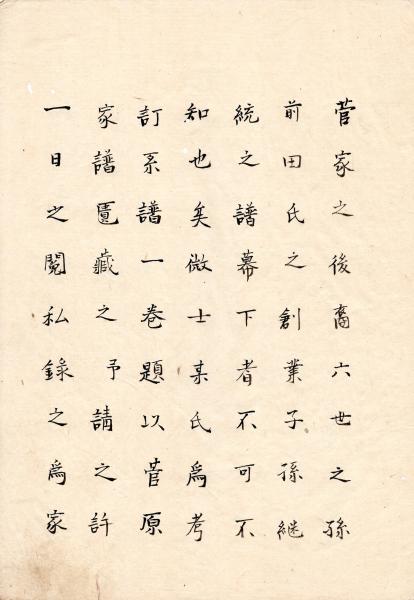 菅家之後裔六世之孫
前田氏之創業子孫継
統之譜幕下者不可不
知也矣微士某氏為考
訂系譜一巻題以菅原
家譜匱藏之予請之許
一日之閲私錄之為家